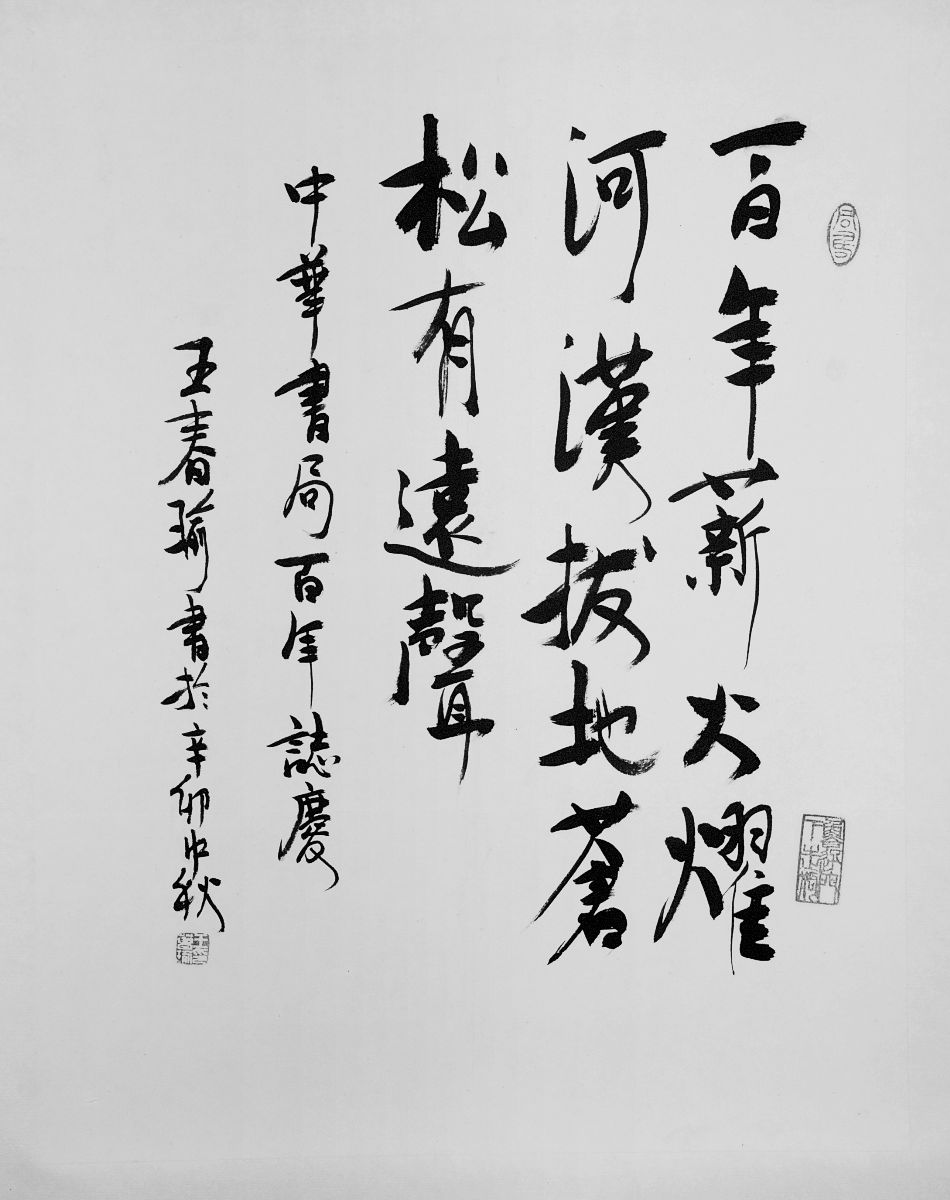 百年薪火耀
河漢拔地蒼
松有遠聲
中華書局百年誌慶
王春瑜書於辛卯中秋